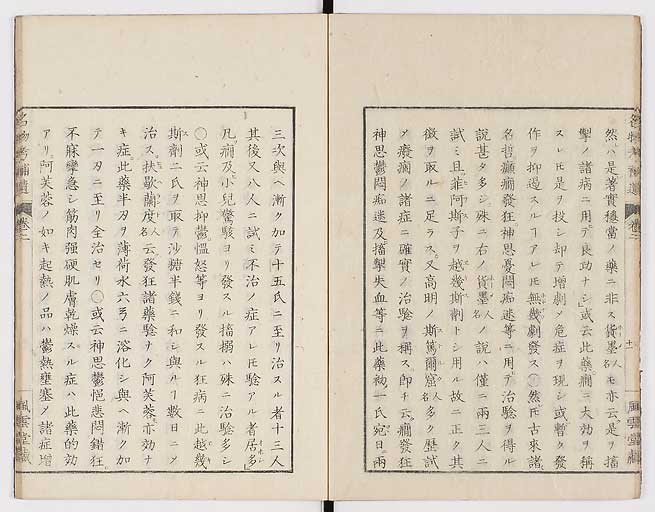 然ハ是著實穩當ノ藥ニ非ス貨墨人名モ亦云是ヲ搐
掣ノ諸病ニ用テ良功ナシ」或云此藥癇ニ大効ヲ稱
スレ𪜈是ヲ投シ却テ增劇ノ危症ヲ現シ或暫ク發
作ヲ抑遏スルヿアレ𪜈無幾劇發ス○然𪜈古來諸
名哲癲癇發狂神思憂悶痴迷等ニ用テ治驗ヲ得ル
說甚タ多シ殊ニ右ノ貨墨人名ノ說ハ僅ニ兩三人ニ
試ミ且非阿斯子ヲ越幾斯劑トシ用ル故ニ正ク其
徵ヲ取ルニ足ラス又高明ノ斯篤爾窟人名多ク歷試
ノ癈癇ノ諸症ニ確實ノ治驗ヲ稱ス卽チ云癇發狂
神思鬱悶痴迷及搐掣失血等ニ此藥初一氏宛日兩
三次與ヘ漸ク加テ十五氏ニ至リ治スル者十三人
其後又八人ニ試ミ不治ノ症アレ𪜈驗アル者居多」
凡癇及小兒驚駭ヨリ發スル搐搦ハ殊ニ治驗多シ
○或云神思抑鬱慍怒等ヨリ發スル狂病ニ此越幾
斯劑二氏ヲ取テ沙糖半錢ニ和シ與ルヿ數日ニメ
治ス扶歇蘭度人名云發狂諸藥驗ナク阿芙蓉亦効ナ
キ症此藥半刃ヲ薄荷水六弓ニ溶化シ與ヘ漸ク加
テ一刃ニ至リ全治セリ○或云神思鬱悒悲悶錯狂
不寐攣急シ筋肉强硬肌膚乾燥スル症ハ此藥的効
アリ阿芙蓉ノ如キ起熱ノ品ハ鬱熱壅塞ノ諸症增
名物考補遺
卷二
風雲堂藏